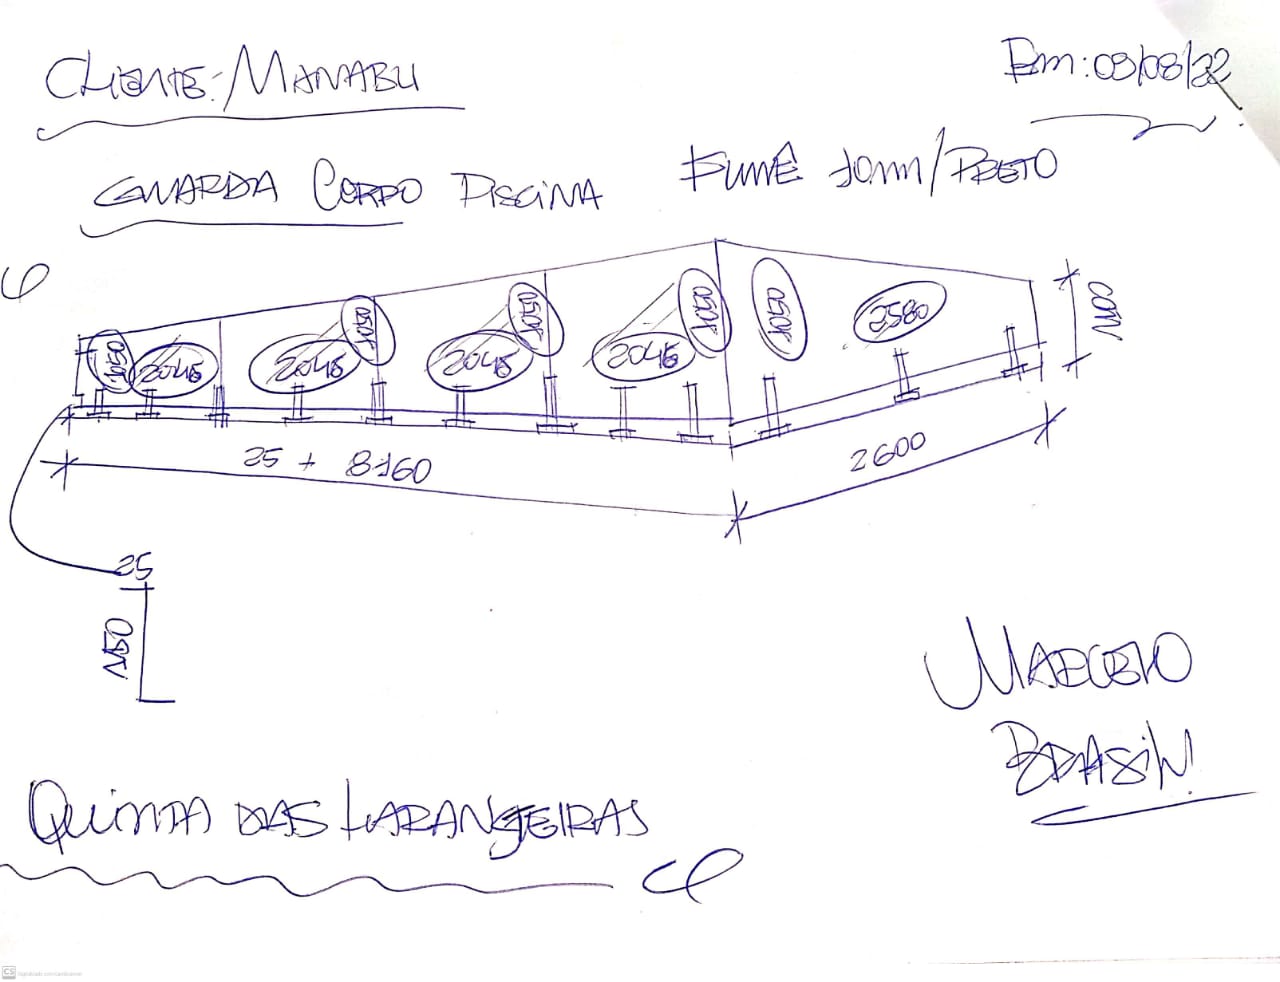 CLIENTE: MANABU
Em: 03/08/22
GUARDA CORPO PISCINA
FUMÊ 10mm/PRETO
1050
2045
2045
1050
2045
1050
2045
1050
1050
2580
25 + 8160
2600
25
MARCELO
BRASIL!
QUINTA DAS LARANGEIRAS
CS